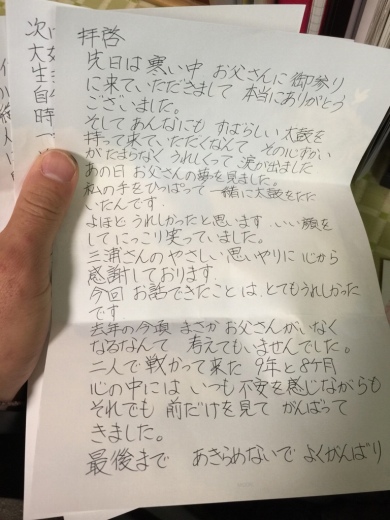 拝啓
先日は 寒い中 お父さんに 御参り
に来ていただきまして 本当にありがとう
ございました。
そして あんなにも すばらしい 太鼓を
持って来て いただたくなんて その心ずかい
が たまらなく うれしくって 涙が出ました
あの日 お父さんの夢を見ました。
私の手をひっぱって 一緒に太鼓をたた
いたんです.
よほど うれしかったと思います. いい顔を
して にっこり笑っていました。
三浦さんの やさしい思いやりに 心から
感謝しております.
今回 お話できたことは、とてもうれしかった
です
去年の今頃 まさか お父さんがいなく
なるなんて 考えてもいませんでした。
二人で 戦かって来た 9年と8ヶ月
心の中には いつも不安を感じながらも
それでも 前だけを見て がんばって
きました。
最後まで あきらめないで よくがんばり